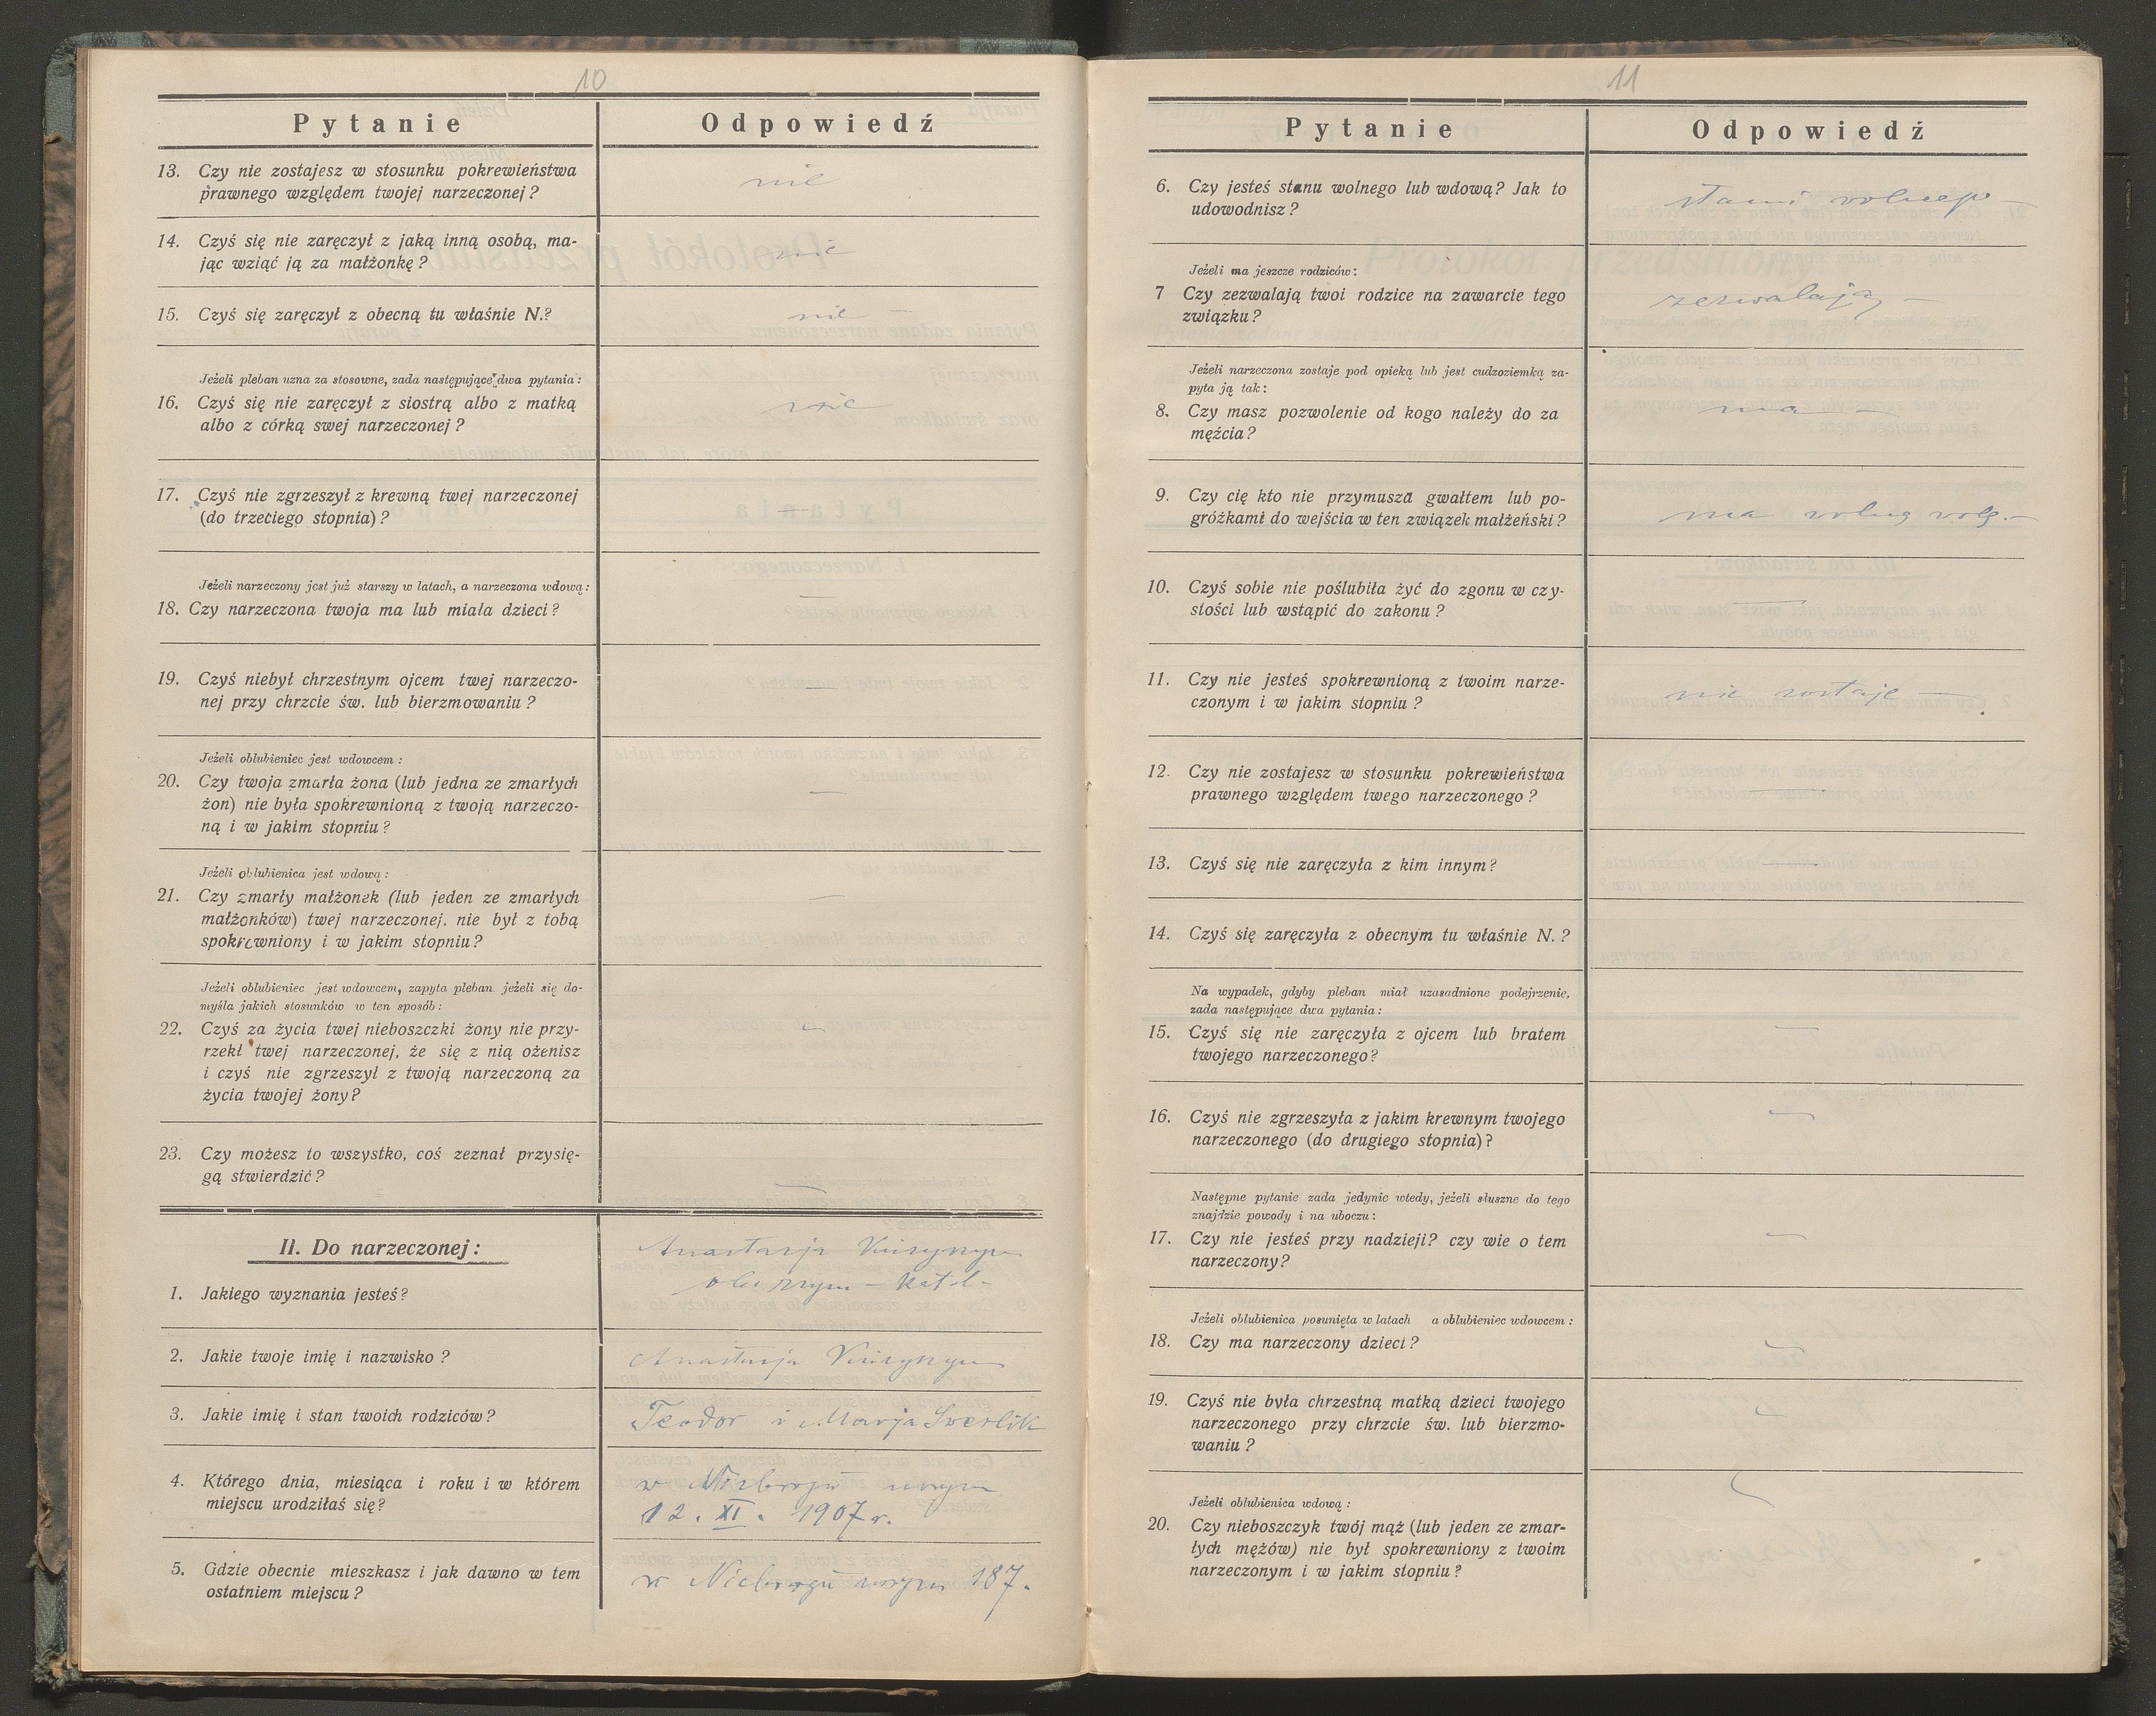 10
Pytanie
Odpowiedź
13. Czy nie zostajesz w stosunku pokrewieństwa
prawnego względem twojej narzeczonej?
nie
14. Czyś się nie zaręczył z jaką inną osobą, ma-
jąc wziąć ją za małżonkę?
nie
15. Czyś się zaręczył z obecną tu właśnie N.?
nie —
Jeżeli pleban uzna za stosowne, zada następujące dwa pytania:
16. Czyś się nie zaręczył z siostrą albo z matką
albo z córką swej narzeczonej?
nie
17. Czyś nie zgrzeszył z krewną twej narzeczonej
(do trzeciego stopnia)?
—
Jeżeli narzeczony jest już starszy w latach, a narzeczona wdową:
18. Czy narzeczona twoja ma lub miała dzieci?
—
19. Czyś niebył chrzestnym ojcem twej narzeczo-
nej przy chrzcie św. lub bierzmowaniu?
—
Jeżeli oblubieniec jest wdowcem:
20. Czy twoja zmarła żona (lub jedna ze zmarłych
żon) nie była spokrewnioną z twoją narzeczo-
ną i w jakim stopniu?
—
Jeżeli oblubienica jest wdową:
21. Czy zmarły małżonek (lub jeden ze zmarłych
małżonków) twej narzeczonej, nie był z tobą
spokrewniony i w jakim stopniu?
—
Jeżeli oblubieniec jest wdowcem, zapyta pleban jeżeli się do-
myśla jakich stosunków w ten sposób:
22. Czyś za życia twej nieboszczki żony nie przy-
rzekł twej narzeczonej, że się z nią ożenisz
i czyś nie zgrzeszył z twoją narzeczoną za
życia twojej żony?
—
23. Czy możesz to wszystko, coś zeznał przysię-
gą stwierdzić?
—
II. Do narzeczonej:
Anastazja
1. Jakiego wyznania jestes?
katol-
2. Jakie twoje imię i nazwisko?
Anastazja
3. Jakie imię i stan twoich rodziców?
Teodor i Marja
4. Którego dnia, miesiąca i roku i w którem
miejscu urodziłaś się?
w
12. XI. 1907 r.
5. Gdzie obecnie mieszkasz i jak dawno w tem
ostatniem miejscu?
w 187.
11
Pytanie
Odpowiedź
6. Czy jesteś stanu wolnego lub wdową? Jak to
udowodnisz?
stanu wolnego
Jeżeli ma jeszcze rodziców:
7 Czy zezwalają twoi rodzice na zawarcie tego
związku?
zezwalają —
Jeżeli narzeczona zostaje pod opieką lub jest cudzoziemką za-
pyta ją tak:
8. Czy masz pozwolenie od kogo należy do za
mężcia?
ma —
9. Czy cię kto nie przymusza gwałtem lub po-
gróżkami do wejścia w ten związek małżeński?
ma wolną wolę. —
10. Czyś sobie nie poślubiła żyć do zgonu w czy-
stości lub wstąpić do zakonu?
—
11. Czy nie jesteś spokrewnioną z twoim narze-
czonym i w jakim stopniu?
nie zostaje —
12. Czy nie zostajesz w stosunku pokrewieństwa
prawnego względem twego narzeczonego?
—
13. Czyś się nie zaręczyła z kim innym?
—
14. Czyś się zaręczyła z obecnym tu właśnie N.?
Na wypadek, gdyby pleban miał uzasadnione podejrzenie,
zada następujące dwa pytania:
15. Czyś się nie zaręczyła z ojcem lub bratem
twojego narzeczonego?
—
16. Czyś nie zgrzeszyła z jakim krewnym twojego
narzeczonego (do drugiego stopnia)?
—
Następne pytanie zada jedynie wtedy, jeżeli słuszne do tego
znajdzie powody i na uboczu:
17. Czy nie jesteś przy nadzieji? czy wie o tem
narzeczony?
—
Jeżeli oblubienica posunięta w latach a oblubieniec wdowcem:
18. Czy ma narzeczony dzieci?
—
19. Czyś nie była chrzestną matką dzieci twojego
narzeczonego przy chrzcie św. lub bierzmo-
waniu?
—
Jeżeli oblubienica wdową:
20. Czy nieboszczyk twój mąż (lub jeden ze zmar-
łych mężów) nie był spokrewniony z twoim
narzeczonym i w jakim stopniu?